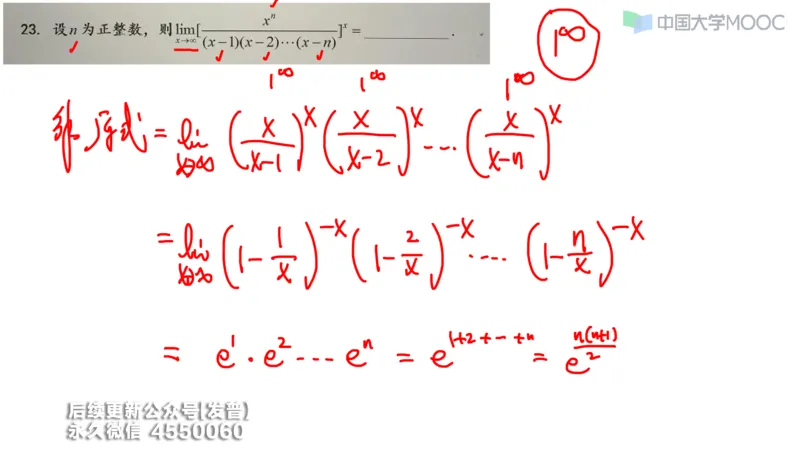 中国大学MOOC
23. 设n为正整数，则lim_{x→∞}[x^n/((x−1)(x−2)⋯(x−n))]^x = ________.
1^∞
1^∞ 1^∞ 1^∞
解 原式 = lim_{x→∞} (x/(x-1))^x (x/(x-2))^x ⋯ (x/(x-n))^x
= lim_{x→∞} (1-1/x)^{-x} (1-2/x)^{-x} ⋯ (1-n/x)^{-x}
= e^1 · e^2 ⋯ e^n = e^{1+2+⋯+n} = e^{n(n+1)/2}
后续更新公众号[发普]
永久微信 4550060